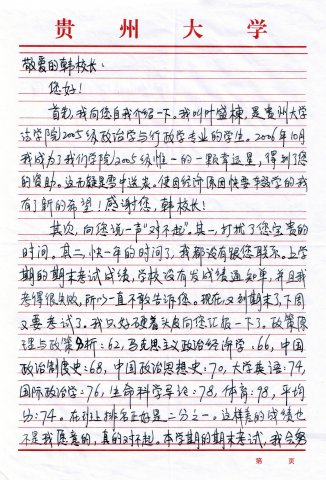 贵州大学
敬爱的韩校长：
您好！
首先，我向您自我介绍一下。我叫叶盛棟，是贵州大学
法学院2005级政治学与行政学专业的学生。2006年10月
我成为了我们学院2005级惟一的一颗幸运星，得到了您
的资助。这无疑是雪中送炭。使因经济原因快要辍学的我
有了新的希望！感谢您，韩校长！
其次，向您说一声“对不起”。其一，打扰了您宝贵的
时间。其二，快一年的时间了，我都没有跟您联系。上学
期的期末考试成绩，学校没有发成绩通知单，并且我
考得很失败，所以一直不敢告诉您。现在又到期末了，下周
又要考试了。我只好硬着头皮向您汇报一下了。政策原
理与政策分析：62，马克思主义政治经济学：66，中国
政治制度史：68，中国政治思想史：70，大学英语：74，
国际政治学：76，生命科学导论：78，体育：98，平均
分：74。在班上排名正好是二分之一。这样差的成绩也
不是我愿意的，真的对不起。本学期的期末考试，我会努
第 页